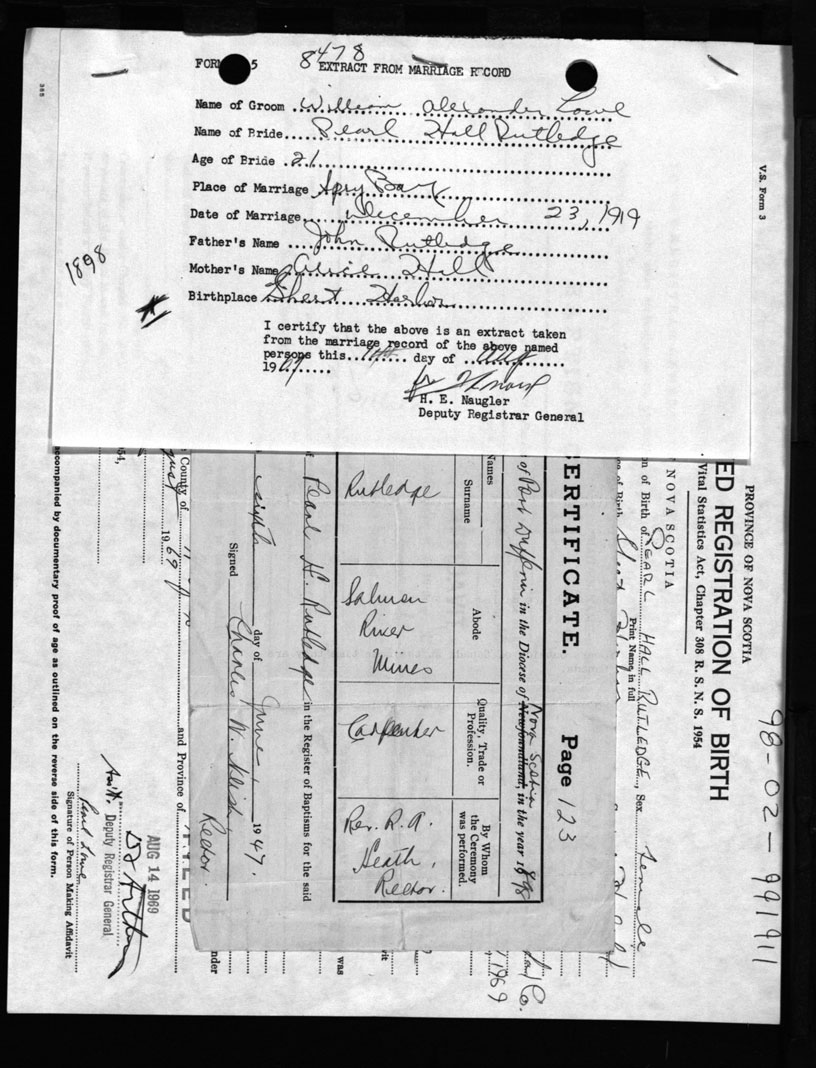 FORM 5
8478
EXTRACT FROM MARRIAGE RECORD
Name of Groom William Alexander Lowe
Name of Bride Pearl Hall Rutledge
Age of Bride 21
Place of Marriage Spry Bay
Date of Marriage December 23, 1919
Father's Name John Rutledge
Mother's Name Hall
Birthplace Harbor
1898
I certify that the above is an extract taken
from the marriage record of the above named
persons this day of Aug
19
H. E. Naugler
Deputy Registrar General
V.S. Form 3
PROVINCE OF NOVA SCOTIA
ED REGISTRATION OF BIRTH
Vital Statistics Act, Chapter 308 R. S. N. S. 1954
NOVA SCOTIA
n of Birth of PEARL HALL RUTLEDGE, Sex Female
Print Name in full
98-02-991911
CERTIFICATE. Page 123
of Port Dufferin in the Diocese of Newfoundland, Nova Scotia in the year 1898
Names
Surname
Abode
Quality, Trade or Profession.
By Whom the Ceremony was performed.
Rutledge
Salmon River Mines
Carpenter
Rev. R. A. Heath, Rector.
Pearl H. Rutledge in the Register of Baptisms for the said
sixth day of June 1947.
Signed Charles W.
Rector.
1969
was
nder
County of
and Province of
1969
AUG 14 1969
Deputy Registrar General
Pearl Lowe
Signature of Person Making Affidavit
accompanied by documentary proof of age as outlined on the reverse side of this form.